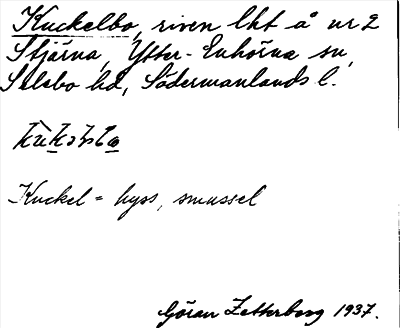 Kuckelbo, riven lht å nr 2
Stjärna, Ytter-Enhörna sn,
Selebo hd, Södermanlands l.
Kuckel = hyss, smussel
Göran Zetterberg 1937.